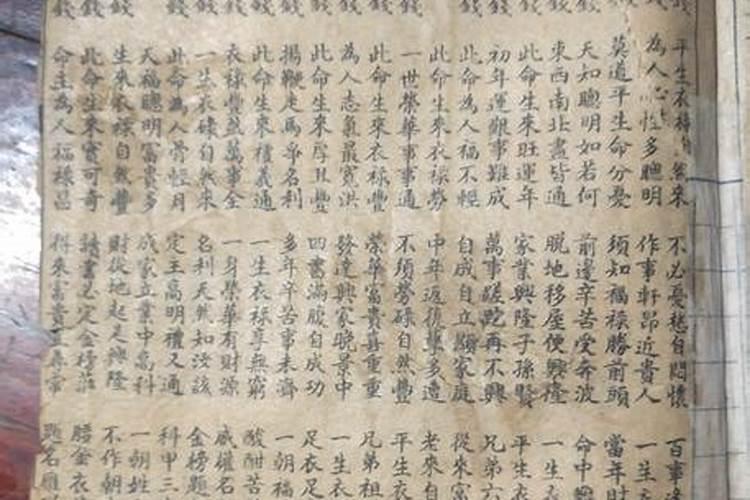 錢
錢
錢
錢
錢
平生衣祿自然來 不必憂愁自悶懷 百事
為人心性多聰明 作事軒昂近貴人 一生
莫道平生命分憂 須知福祿勝前頭 當年時
天知聰明如若何 前邊辛苦受奔波 命中
東西南北盡皆通 脫地移屋便興隆 一生衣
此命生來旺運年 家業興隆子孫賢 平生衣
初年運艱事難成 萬事蹉跎再不興 兄弟六
此命為人福不輕 自成自立顯家庭 從來富
此命生來衣祿勞 中年返復事多遭 老來自
一世榮華事事通 不須勞碌自然豐 平生衣
此命生來衣祿豐 榮華富貴喜重重 兄弟祖
為人志氣最寬洪 發達興家晚景中 一生衣
此命生來厚且豐 四書滿腹自成功 足衣足
揚鞭走馬爭名利 多年辛苦事未濟 一朝福
此命生來禮義通 一生衣祿享無窮 酸甜苦
衣祿豐盈萬事全 一身榮華有財源 威權名
一生衣碌自然來 名利天然知該 金榜題
此命為人骨輕月 定主高明禮又通 科甲三
天福聰明富貴多 成家立業中高科 一朝姓
生來衣祿自然豐 財從地起足興隆 不作朝
此命生來實可奇 讀書必定金榜 勝金衣
命主為人福祿昌 得來富貴 題名雁